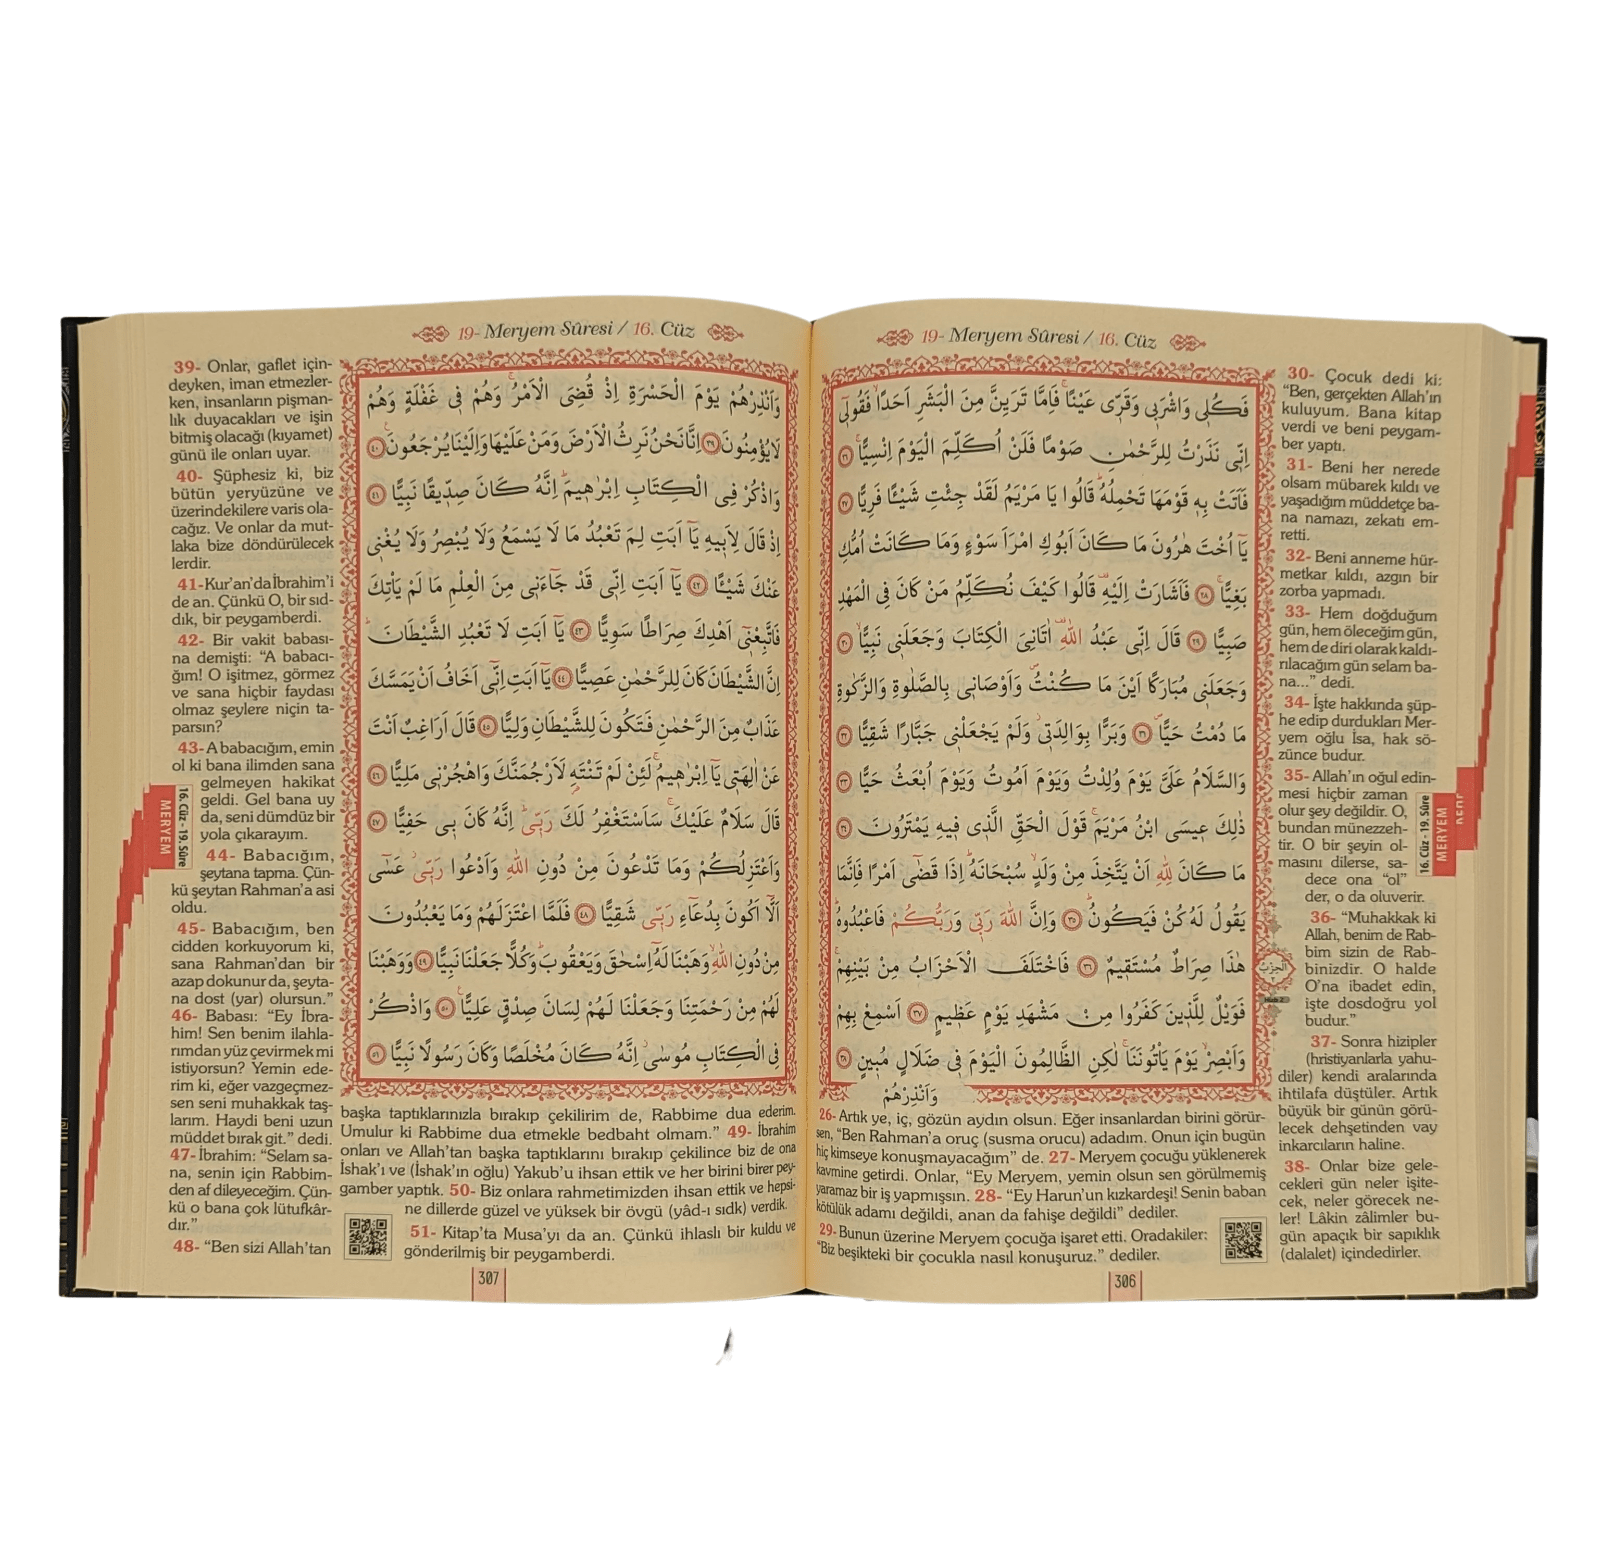 19- Meryem Sûresi / 16. Cüz
فَكُلِى وَاشْرَبِى وَقَرِّى عَيْنًاۚ فَاِمَّا تَرَيِنَّ مِنَ الْبَشَرِ اَحَدًاۙ فَقُولِٓى
اِنِّى نَذَرْتُ لِلرَّحْمٰنِ صَوْمًا فَلَنْ اُكَلِّمَ الْيَوْمَ اِنْسِيًّاۚ ﴿٢٦﴾
فَاَتَتْ بِهٖ قَوْمَهَا تَحْمِلُهُۜ قَالُوا يَا مَرْيَمُ لَقَدْ جِئْتِ شَيْـًٔا فَرِيًّا ﴿٢٧﴾
يَٓا اُخْتَ هٰرُونَ مَا كَانَ اَبُوكِ امْرَاَ سَوْءٍ وَمَا كَانَتْ اُمُّكِ
بَغِيًّاۚ ﴿٢٨﴾ فَاَشَارَتْ اِلَيْهِۜ قَالُوا كَيْفَ نُكَلِّمُ مَنْ كَانَ فِى الْمَهْدِ
صَبِيًّا ﴿٢٩﴾ قَالَ اِنِّى عَبْدُ اللّٰهِۜ اٰتَانِىَ الْكِتَابَ وَجَعَلَنِى نَبِيًّاۙ ﴿٣٠﴾
وَجَعَلَنِى مُبَارَكًا اَيْنَ مَا كُنْتُۖ وَاَوْصَانِى بِالصَّلٰوةِ وَالزَّكٰوةِ
مَا دُمْتُ حَيًّاۖ ﴿٣١﴾ وَبَرًّا بِوَالِدَتِىۘ وَلَمْ يَجْعَلْنِى جَبَّارًا شَقِيًّا ﴿٣٢﴾
وَالسَّلَامُ عَلَىَّ يَوْمَ وُلِدْتُ وَيَوْمَ اَمُوتُ وَيَوْمَ اُبْعَثُ حَيًّا ﴿٣٣﴾
ذٰلِكَ عِيسَى ابْنُ مَرْيَمَۚ قَوْلَ الْحَقِّ الَّذِى فِيهِ يَمْتَرُونَ ﴿٣٤﴾
مَا كَانَ لِلّٰهِ اَنْ يَتَّخِذَ مِنْ وَلَدٍۙ سُبْحَانَهُۜ اِذَا قَضٰٓى اَمْرًا فَاِنَّمَا
يَقُولُ لَهُ كُنْ فَيَكُونُۜ ﴿٣٥﴾ وَاِنَّ اللّٰهَ رَبِّى وَرَبُّكُمْ فَاعْبُدُوهُۜ
هٰذَا صِرَاطٌ مُسْتَقِيمٌ ﴿٣٦﴾ فَاخْتَلَفَ الْاَحْزَابُ مِنْ بَيْنِهِمْۚ
فَوَيْلٌ لِلَّذِينَ كَفَرُوا مِنْ مَشْهَدِ يَوْمٍ عَظِيمٍ ﴿٣٧﴾ اَسْمِعْ بِهِمْ
وَاَبْصِرْۙ يَوْمَ يَأْتُونَنَاۚ لٰكِنِ الظَّالِمُونَ الْيَوْمَ فِى ضَلَالٍ مُبِينٍ ﴿٣٨﴾
وَاَنْذِرْهُمْ
الحزب
Hizb 2
26- Artık ye, iç, gözün aydın olsun. Eğer insanlardan birini görür-
sen, “Ben Rahman’a oruç (susma orucu) adadım. Onun için bugün
hiç kimseye konuşmayacağım” de. 27- Meryem çocuğu yüklenerek
kavmine getirdi. Onlar, “Ey Meryem, yemin olsun sen görülmemiş
yaramaz bir iş yapmışsın. 28- “Ey Harun’un kızkardeşi! Senin baban
kötülük adamı değildi, anan da fahişe değildi” dediler.
29- Bunun üzerine Meryem çocuğa işaret etti. Oradakiler:
“Biz beşikteki bir çocukla nasıl konuşuruz.” dediler.
30- Çocuk dedi ki:
“Ben, gerçekten Allah’ın
kuluyum. Bana kitap
verdi ve beni peygam-
ber yaptı.
31- Beni her nerede
olsam mübarek kıldı ve
yaşadığım müddetçe ba-
na namazı, zekatı em-
retti.
32- Beni anneme hür-
metkar kıldı, azgın bir
zorba yapmadı.
33- Hem doğduğum
gün, hem öleceğim gün,
hem de diri olarak kaldı-
rılacağım gün selam ba-
na...” dedi.
34- İşte hakkında şüp-
he edip durdukları Mer-
yem oğlu İsa, hak sö-
zünce budur.
35- Allah’ın oğul edin-
mesi hiçbir zaman
olur şey değildir. O,
bundan münezzeh-
tir. O bir şeyin ol-
masını dilerse, sa-
dece ona “ol”
der, o da oluverir.
36- “Muhakkak ki
Allah, benim de Rab-
bim sizin de Rab-
binizdir. O halde
O’na ibadet edin,
işte dosdoğru yol
budur.”
37- Sonra hizipler
(hristiyanlarla yahu-
diler) kendi aralarında
ihtilafa düştüler. Artık
büyük bir günün görü-
lecek dehşetinden vay
inkarcıların haline.
38- Onlar bize gele-
cekleri gün neler işite-
cek, neler görecek ne-
ler! Lâkin zâlimler bu-
gün apaçık bir sapıklık
(dalalet) içindedirler.
16. Cüz - 19. Sûre
MERYEM
306
19- Meryem Sûresi / 16. Cüz
وَاَنْذِرْهُمْ يَوْمَ الْحَسْرَةِ اِذْ قُضِىَ الْاَمْرُۢ وَهُمْ فِى غَفْلَةٍ وَهُمْ
لَا يُؤْمِنُونَ ﴿٣٩﴾ اِنَّا نَحْنُ نَرِثُ الْاَرْضَ وَمَنْ عَلَيْهَا وَاِلَيْنَا يُرْجَعُونَ۟ ﴿٤٠﴾
وَاذْكُرْ فِى الْكِتَابِ اِبْرٰهِيمَۜ اِنَّهُ كَانَ صِدِّيقًا نَبِيًّا ﴿٤١﴾
اِذْ قَالَ لِاَبِيهِ يَٓا اَبَتِ لِمَ تَعْبُدُ مَا لَا يَسْمَعُ وَلَا يُبْصِرُ وَلَا يُغْنِى
عَنْكَ شَيْـًٔا ﴿٤٢﴾ يَٓا اَبَتِ اِنِّى قَدْ جَٓاءَنِى مِنَ الْعِلْمِ مَا لَمْ يَأْتِكَ
فَاتَّبِعْنِٓى اَهْدِكَ صِرَاطًا سَوِيًّا ﴿٤٣﴾ يَٓا اَبَتِ لَا تَعْبُدِ الشَّيْطَانَۜ
اِنَّ الشَّيْطَانَ كَانَ لِلرَّحْمٰنِ عَصِيًّا ﴿٤٤﴾ يَٓا اَبَتِ اِنِّٓى اَخَافُ اَنْ يَمَسَّكَ
عَذَابٌ مِنَ الرَّحْمٰنِ فَتَكُونَ لِلشَّيْطَانِ وَلِيًّا ﴿٤٥﴾ قَالَ اَرَاغِبٌ اَنْتَ
عَنْ اٰلِهَتِى يَٓا اِبْرٰهِيمُۚ لَئِنْ لَمْ تَنْتَهِ لَاَرْجُمَنَّكَ وَاهْجُرْنِى مَلِيًّا ﴿٤٦﴾
قَالَ سَلَامٌ عَلَيْكَۚ سَاَسْتَغْفِرُ لَكَ رَبِّىۜ اِنَّهُ كَانَ بِى حَفِيًّا ﴿٤٧﴾
وَاَعْتَزِلُكُمْ وَمَا تَدْعُونَ مِنْ دُونِ اللّٰهِ وَاَدْعُوا رَبِّىۘ عَسٰٓى
اَلَّٓا اَكُونَ بِدُعَٓاءِ رَبِّى شَقِيًّا ﴿٤٨﴾ فَلَمَّا اعْتَزَلَهُمْ وَمَا يَعْبُدُونَ
مِنْ دُونِ اللّٰهِۙ وَهَبْنَا لَهُٓ اِسْحٰقَ وَيَعْقُوبَۜ وَكُلًّا جَعَلْنَا نَبِيًّا ﴿٤٩﴾ وَوَهَبْنَا
لَهُمْ مِنْ رَحْمَتِنَا وَجَعَلْنَا لَهُمْ لِسَانَ صِدْقٍ عَلِيًّا۟ ﴿٥٠﴾ وَاذْكُرْ
فِى الْكِتَابِ مُوسٰىۘ اِنَّهُ كَانَ مُخْلَصًا وَكَانَ رَسُولًا نَبِيًّا ﴿٥١﴾
39- Onlar, gaflet için-
deyken, iman etmezler-
ken, insanların pişman-
lık duyacakları ve işin
bitmiş olacağı (kıyamet)
günü ile onları uyar.
40- Şüphesiz ki, biz
bütün yeryüzüne ve
üzerindekilere varis ola-
cağız. Ve onlar da mut-
laka bize döndürülecek
lerdir.
41- Kur’an’da İbrahim’i
de an. Çünkü O, bir sıd-
dık, bir peygamberdi.
42- Bir vakit babası-
na demişti: “A babacı-
ğım! O işitmez, görmez
ve sana hiçbir faydası
olmaz şeylere niçin ta-
parsın?
43- A babacığım, emin
ol ki bana ilimden sana
gelmeyen hakikat
geldi. Gel bana uy
da, seni dümdüz bir
yola çıkarayım.
44- Babacığım,
şeytana tapma. Çün-
kü şeytan Rahman’a asi
oldu.
45- Babacığım, ben
cidden korkuyorum ki,
sana Rahman’dan bir
azap dokunur da, şeyta-
na dost (yar) olursun.”
46- Babası: “Ey İbra-
him! Sen benim ilahla-
rımdan yüz çevirmek mi
istiyorsun? Yemin ede-
rim ki, eğer vazgeçmez-
sen seni muhakkak taş-
larım. Haydi beni uzun
müddet bırak git.” dedi.
47- İbrahim: “Selam sa-
na, senin için Rabbim-
den af dileyeceğim. Çün-
kü o bana çok lütufkâr-
dır.”
48- “Ben sizi Allah’tan
başka taptıklarınızla bırakıp çekilirim de, Rabbime dua ederim.
Umulur ki Rabbime dua etmekle bedbaht olmam.” 49- İbrahim
onları ve Allah’tan başka taptıklarını bırakıp çekilince biz de ona
İshak’ı ve (İshak’ın oğlu) Yakub’u ihsan ettik ve her birini birer pey-
gamber yaptık. 50- Biz onlara rahmetimizden ihsan ettik ve hepsi-
ne dillerde güzel ve yüksek bir övgü (yâd-ı sıdk) verdik.
51- Kitap’ta Musa’yı da an. Çünkü ihlaslı bir kuldu ve
gönderilmiş bir peygamberdi.
16. Cüz - 19. Sûre
MERYEM
307